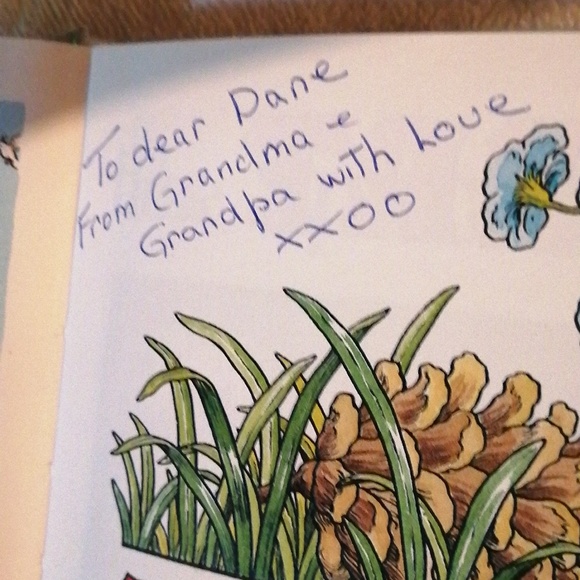 To dear Dane
From Grandma e
Grandpa with Love
xxOO